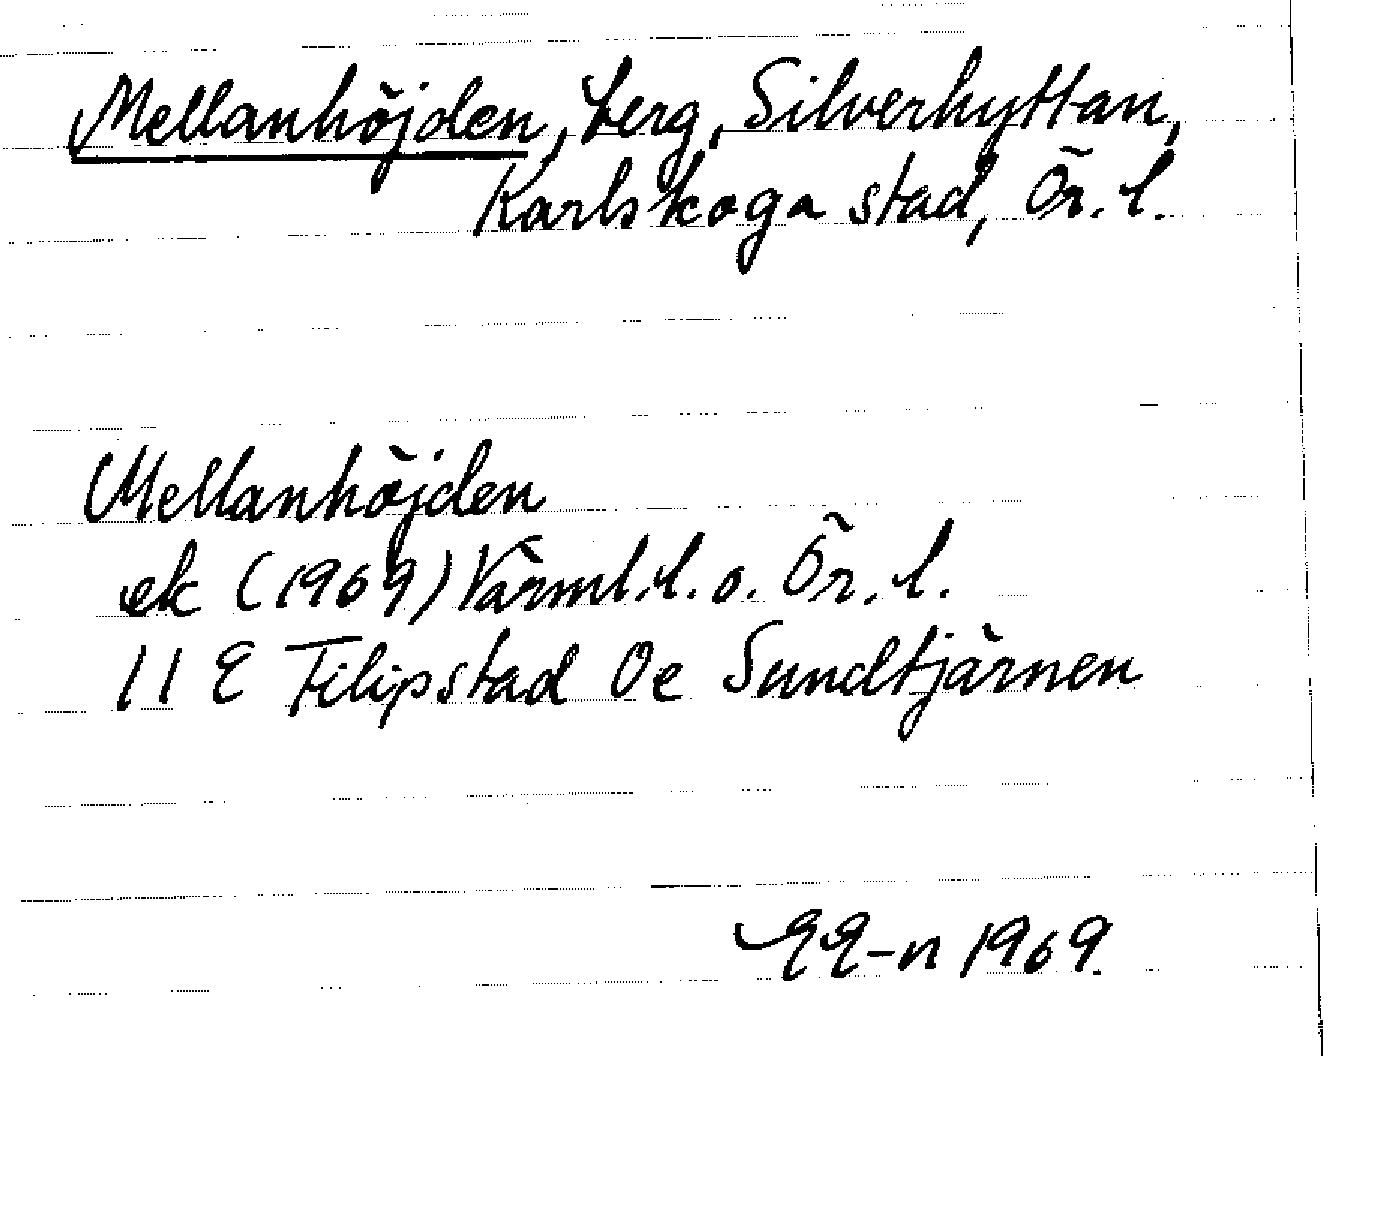 Mellanhöjden, berg, Silverhyttan,
Karlskoga stad, Ör. l.
Mellanhöjden
ek (1969) Värml. l. o. Ör. l.
11 E Filipstad 0e Sundtjärnen
EE-n 1969.